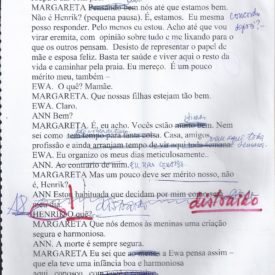 MARGARETA Pensando bem nós até que estamos bem.
Não é Henrik? (pequena pausa). É, estamos. Eu mesma
posso responder. Pelo menos eu estou. Acho até que vou
virar eremita, com opinião sobre tudo e me lixando para o
que os outros pensam. Desisto de representar o papel de
mãe e esposa feliz. Basta ter saúde e viver aqui o resto da
vida e caminhar pela praia. Eu mereço. É um pouco
mérito meu, também –
EWA. O quê? Mamãe.
MARGARETA. Que nossas filhas estejam tão bem.
EWA. Claro.
ANN Bem?
MARGARETA. É, eu acho. Vocês estão muito bem. Nem
em como tem tempo para tanta coisa. Casa, amigos,
profissão e ainda arranjam tempo de vir aqui toda semana.
EWA. Eu organizo os meus dias meticulosamente.
ANN. Ao contrario de mim.
MARGARETA Mas um pouco deve ser mérito nosso, não
é, Henrik?
ANN Estou habituada que decidam por mim
HENRIK O quê?
distraído
distraído
MARGARETA Que nós demos às meninas uma criação
segura e harmoniosa.
ANN. A morte é sempre segura.
MARGARETA Eu sei que a Ewa pensa assim –
que ela teve uma infância boa e harmoniosa